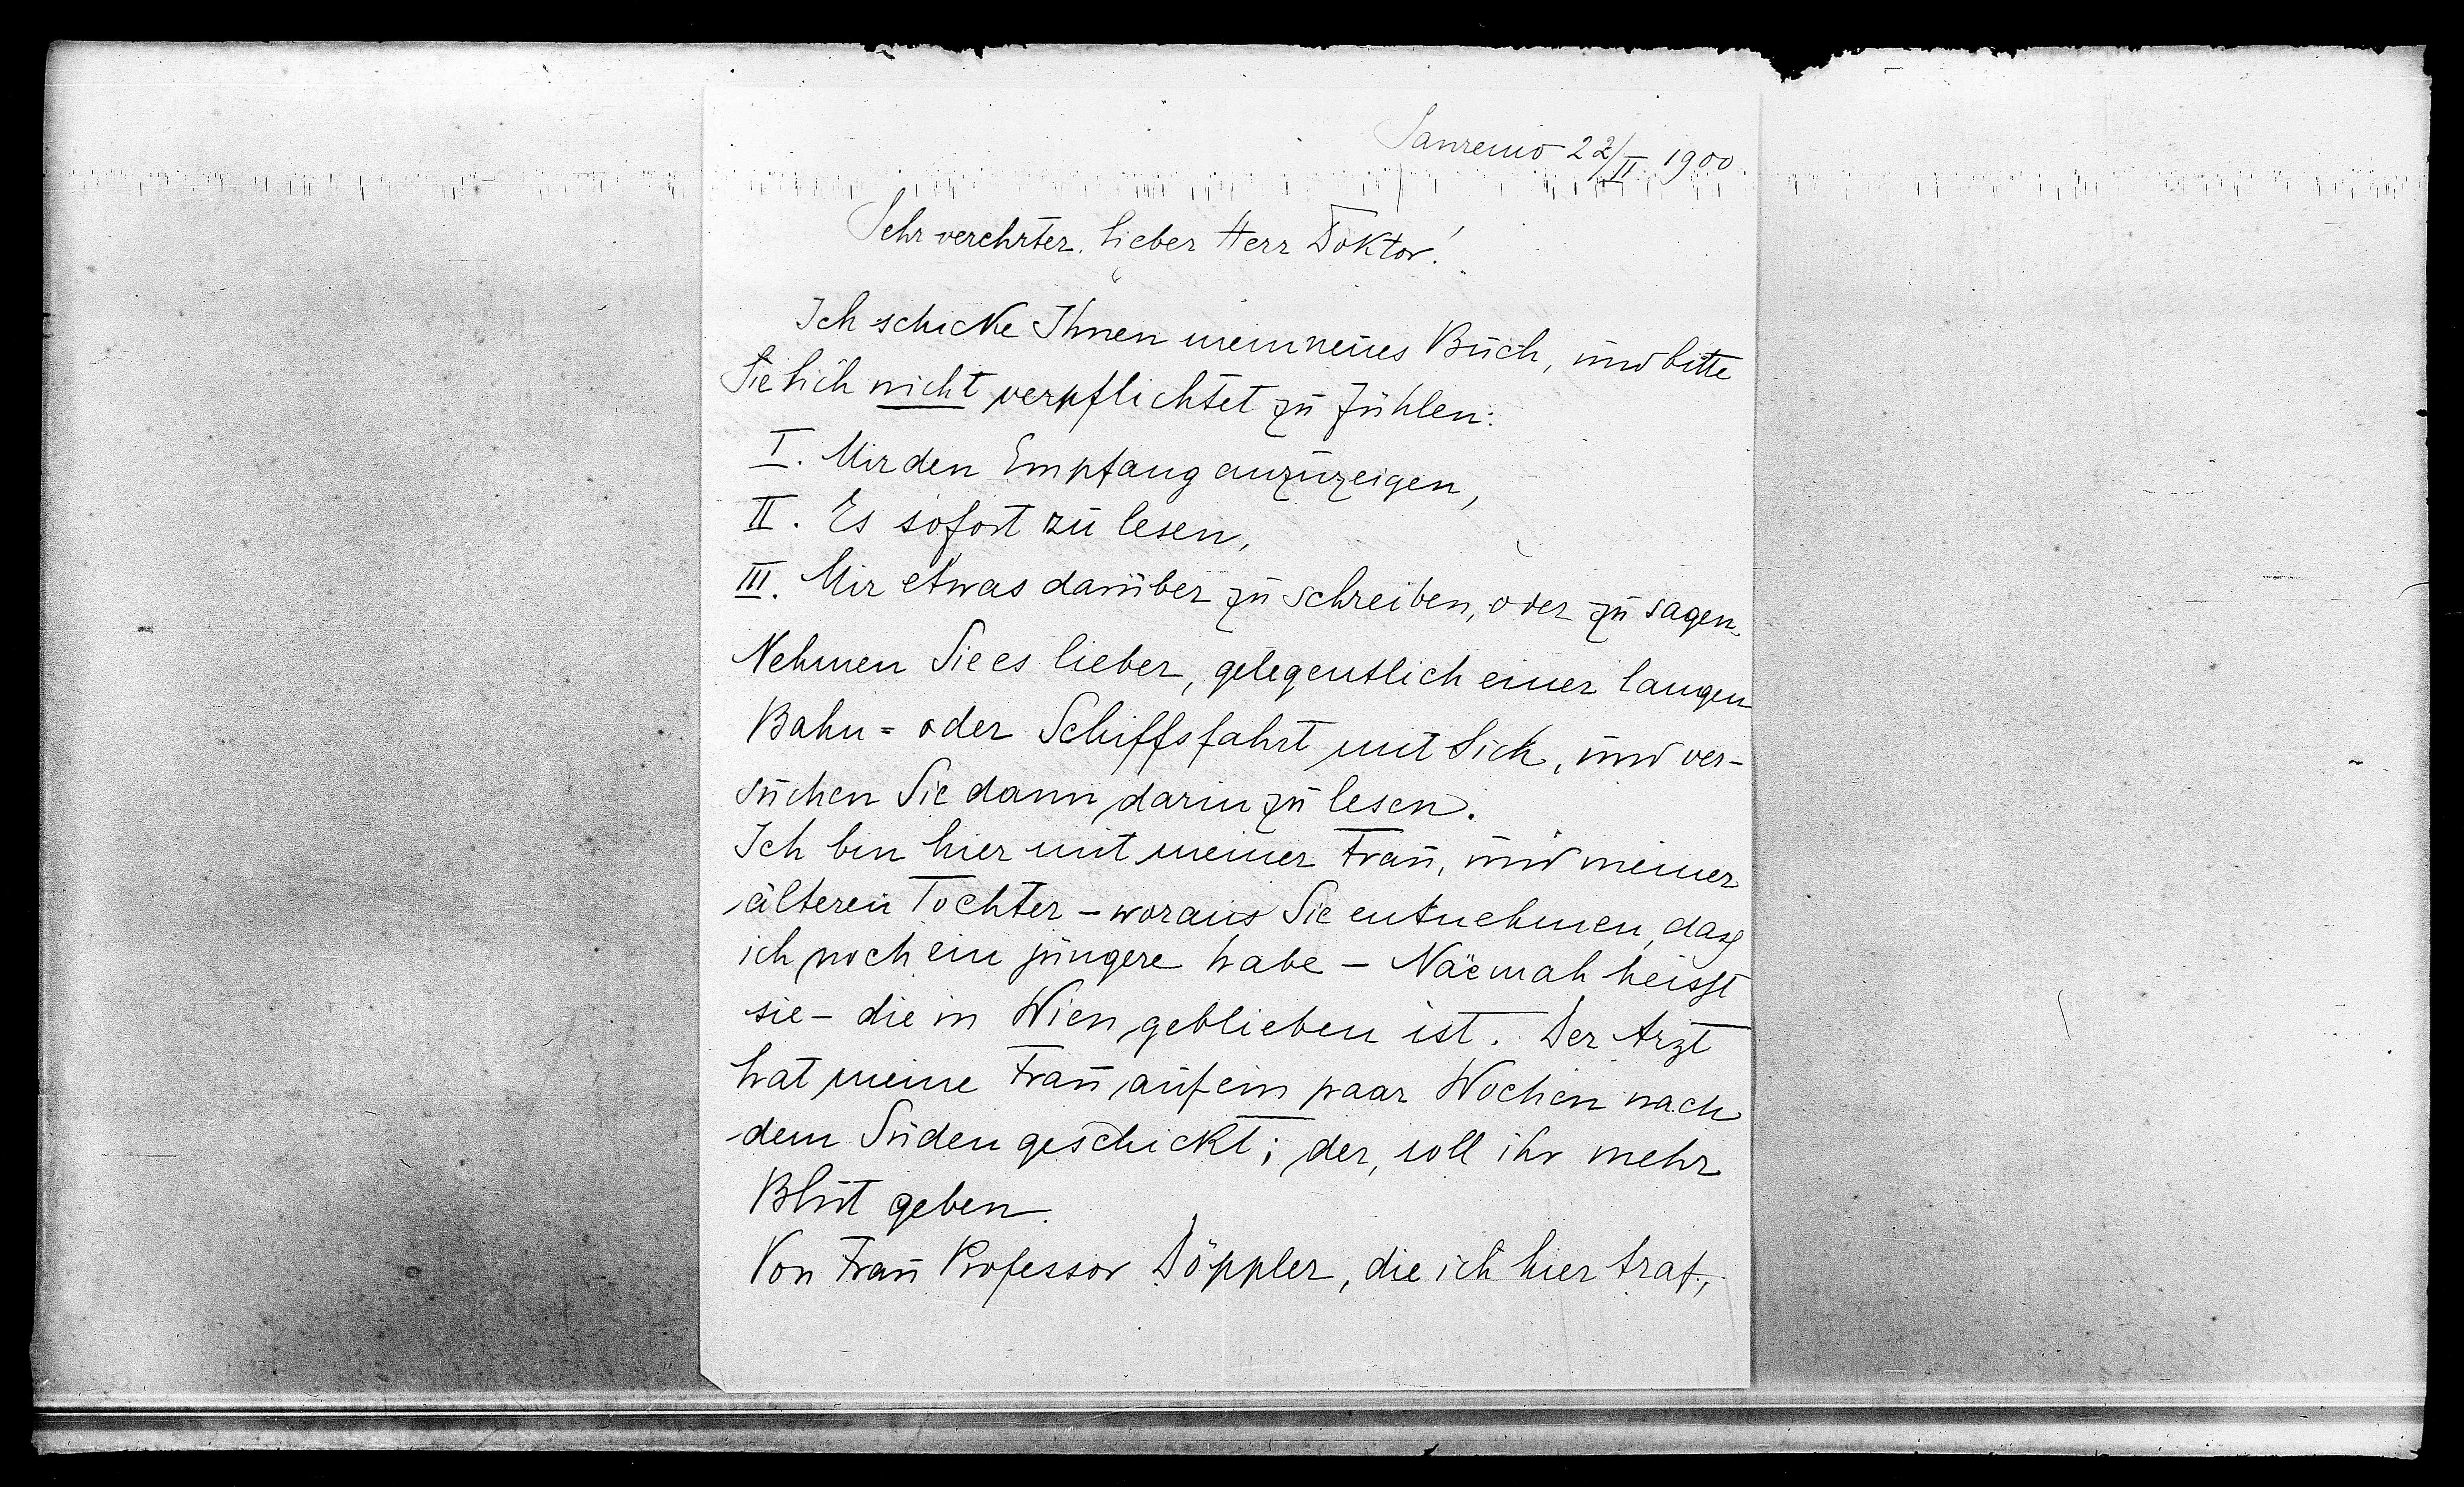 Sanremo 22/II 1900.
Sehr verehrter, lieber Herr Doktor!
Ich schicke Ihnen mein neues Buch, und bitte
Sie sich nicht verpflichtet zu fühlen:
I. Mir den Empfang anzuzeigen,
II. Es sofort zu lesen,
III. Mir etwas darüber zu schreiben, oder zu sagen.
Nehmen Sie es lieber, gelegentlich einer langen
Bahn= oder Schiffsfahrt mit Sich, und ver-
suchen Sie dann darin zu lesen.
Ich bin hier mit meiner Frau, und meiner
älteren Tochter – woraus Sie entnehmen, dass
ich noch ein jüngere habe – Näemah heisst
sie – die in Wien geblieben ist. Der Arzt
hat meine Frau auf ein paar Wochen nach
dem Süden geschickt; der, soll ihr mehr
Blut geben.
Von Frau Professor Döppler, die ich hier traf,